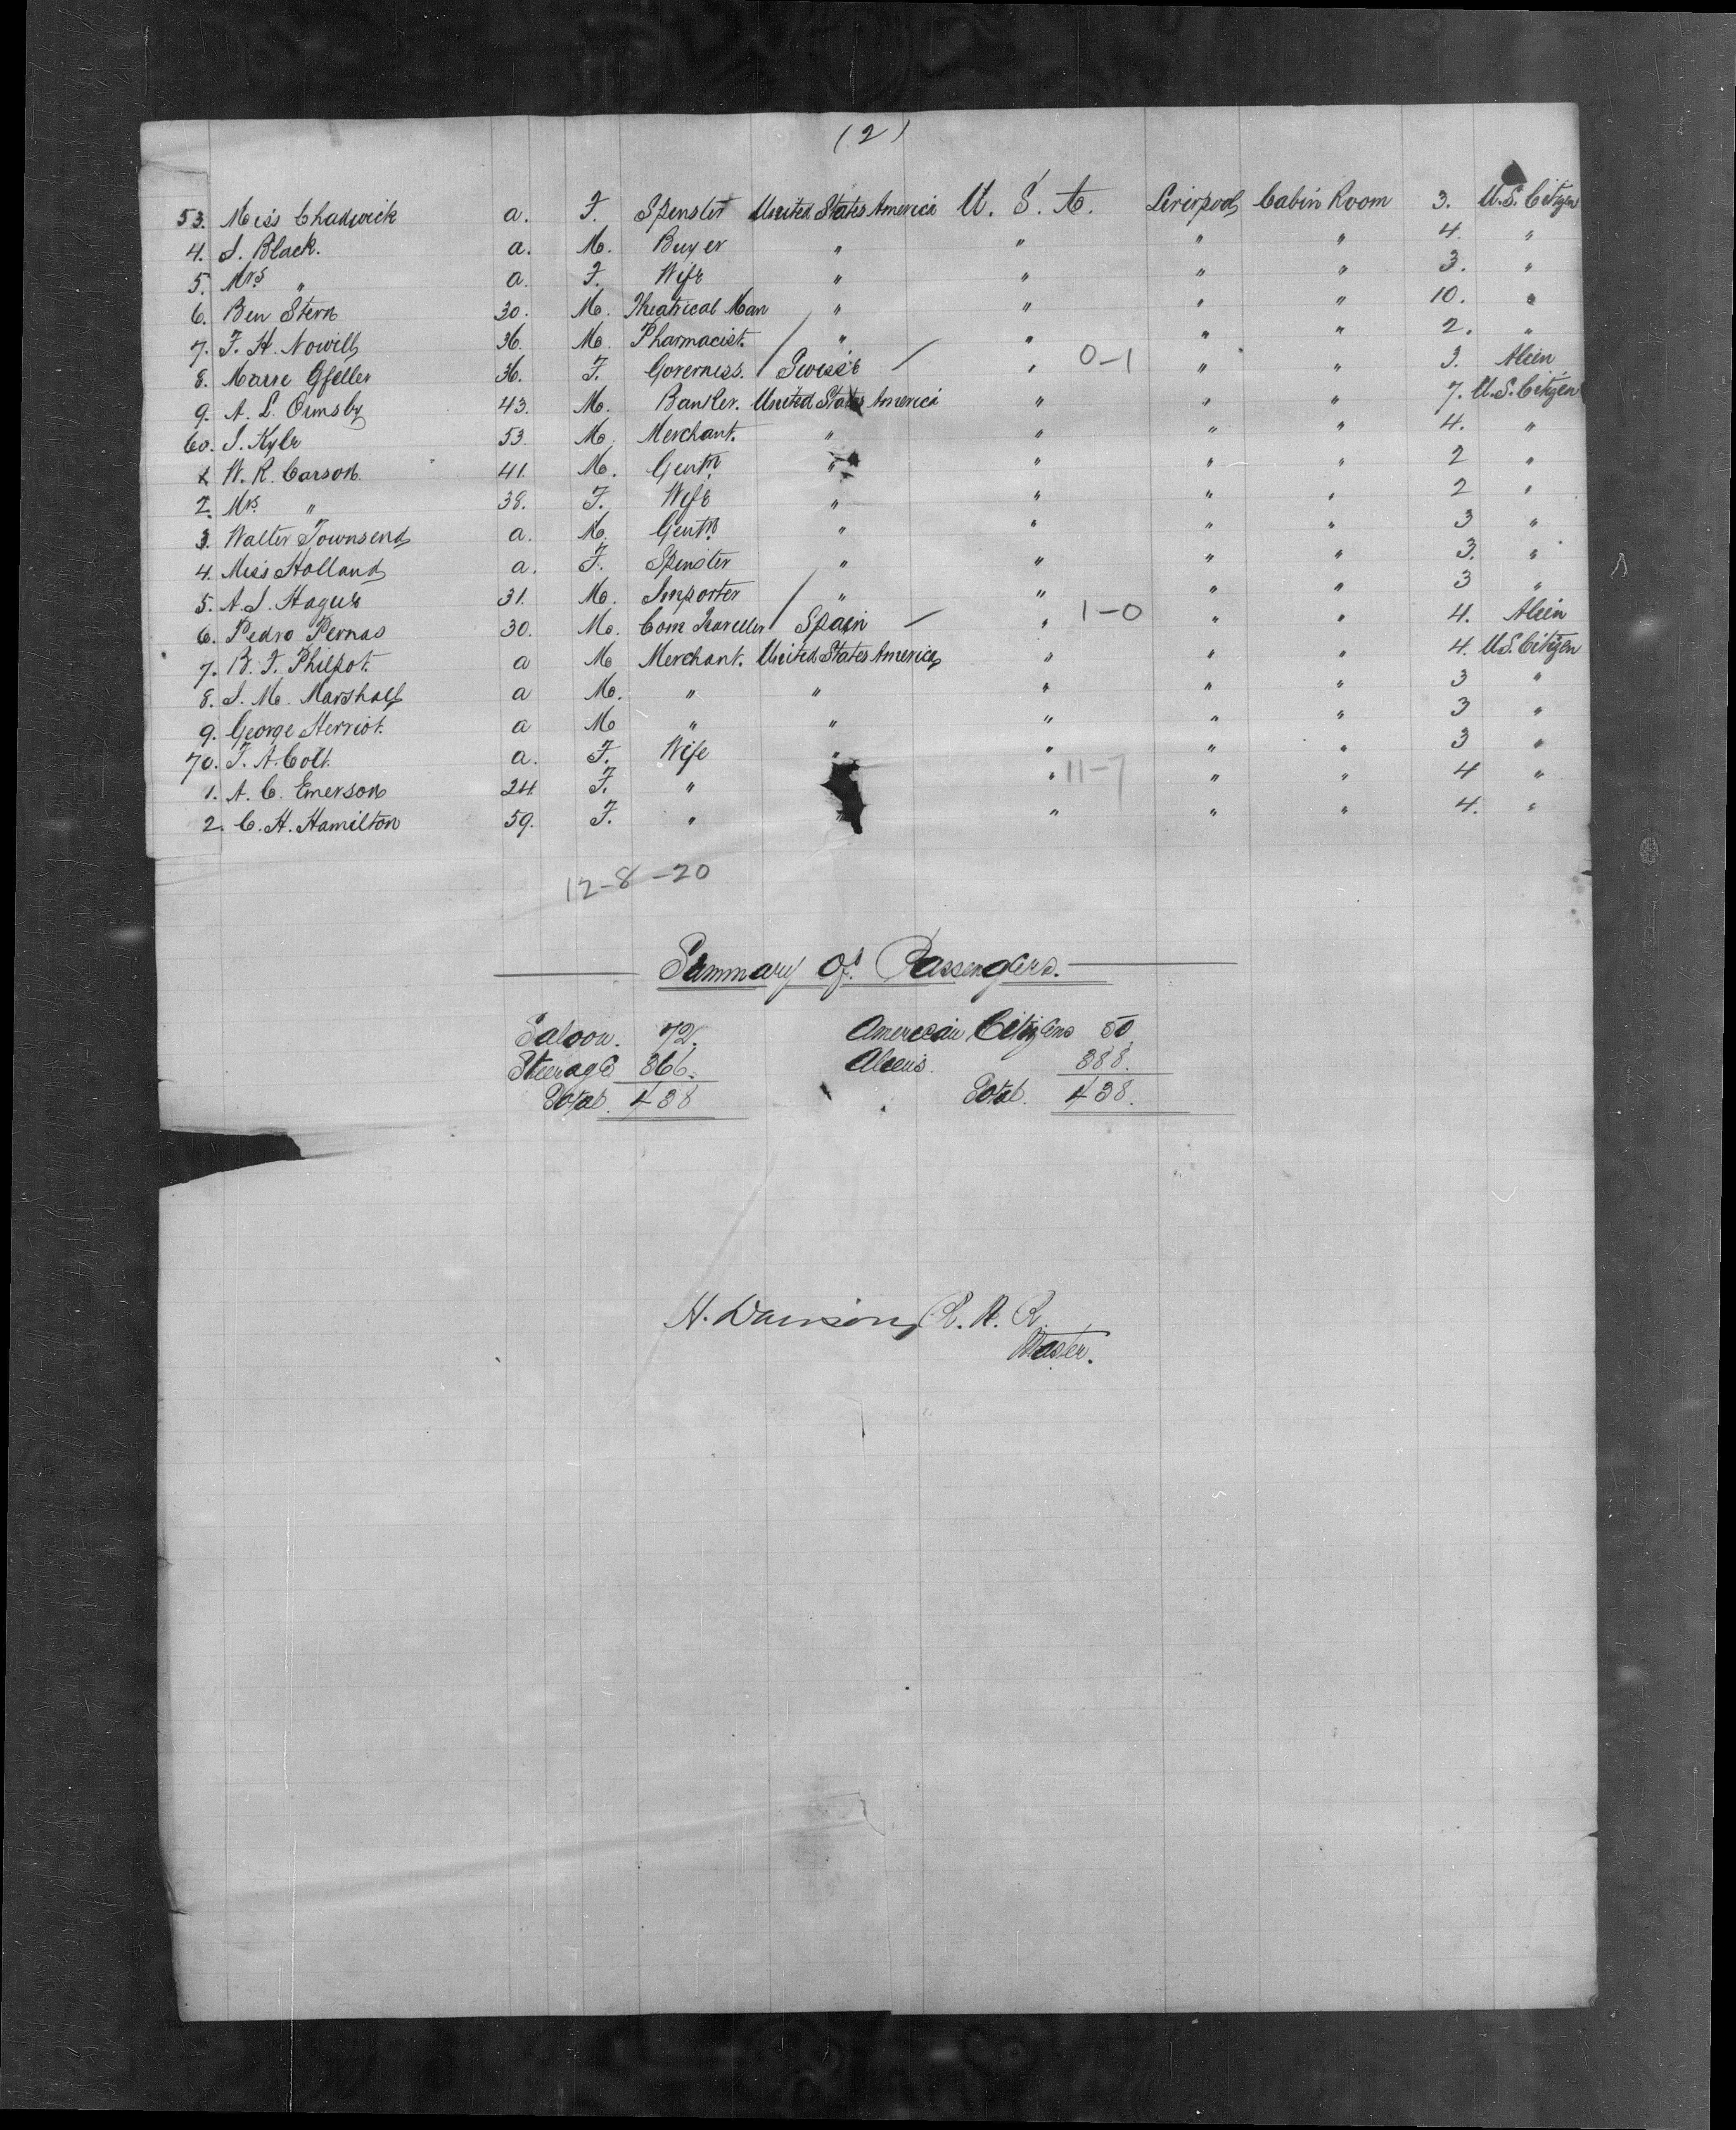 (2)
53. Miss Chadwick a. F. Spinster United States America U. S. A. Liverpool Cabin Room 3. U.S. Citizen
4. J. Black. a. M. Buyer " " " " 4. "
5. Mrs " a. F. Wife " " " " 3. "
6. Ben Stern 30. M. Theatrical Man " " " " 10. "
7. F. H. Nowill 36. M. Pharmacist. " " " " 2. "
8. Marie Gfeller 36. F. Governess. Swiss " 0-1 " " 3. Alien
9. A. L. Ormsby 43. M. Banker. United States America " " " 7. U.S. Citizen
60. J. Kyle 53 M. Merchant. " " " " 4. "
1 W. R. Carson. 41. M. Gentn " " " " 2 "
2. Mrs " 38. F. Wife " " " " 2 "
3. Walter Townsend a. M. Gentn " " " " 3 "
4. Miss Holland a. F. Spinster " " " " 3. "
5. A. J. Hague 31. M. Importer " " " " 3 "
6. Pedro Pernas 30. M. Com Traveller Spain " 1-0 " " 4. Alien
7. B. F. Philpot. a M Merchant. United States America " " " 4. U.S. Citizen
8. J. M. Marshall a M. " " " " " 3 "
9. George Herriot. a M " " " " " 3 "
70. F. A. Colt. a. F. Wife " " " " 3 "
1. A. C. Emerson 24 F. " " 11-7 " " 4 "
2. C. H. Hamilton 59. F. " " " " " 4. "
12-8-20
Summary Of Passengers.
Saloon. 72. American Citizens 50
Steerage 366. Aliens. 388.
Total. 438 Total. 438.
H. Davison, R. N. R.
Master.